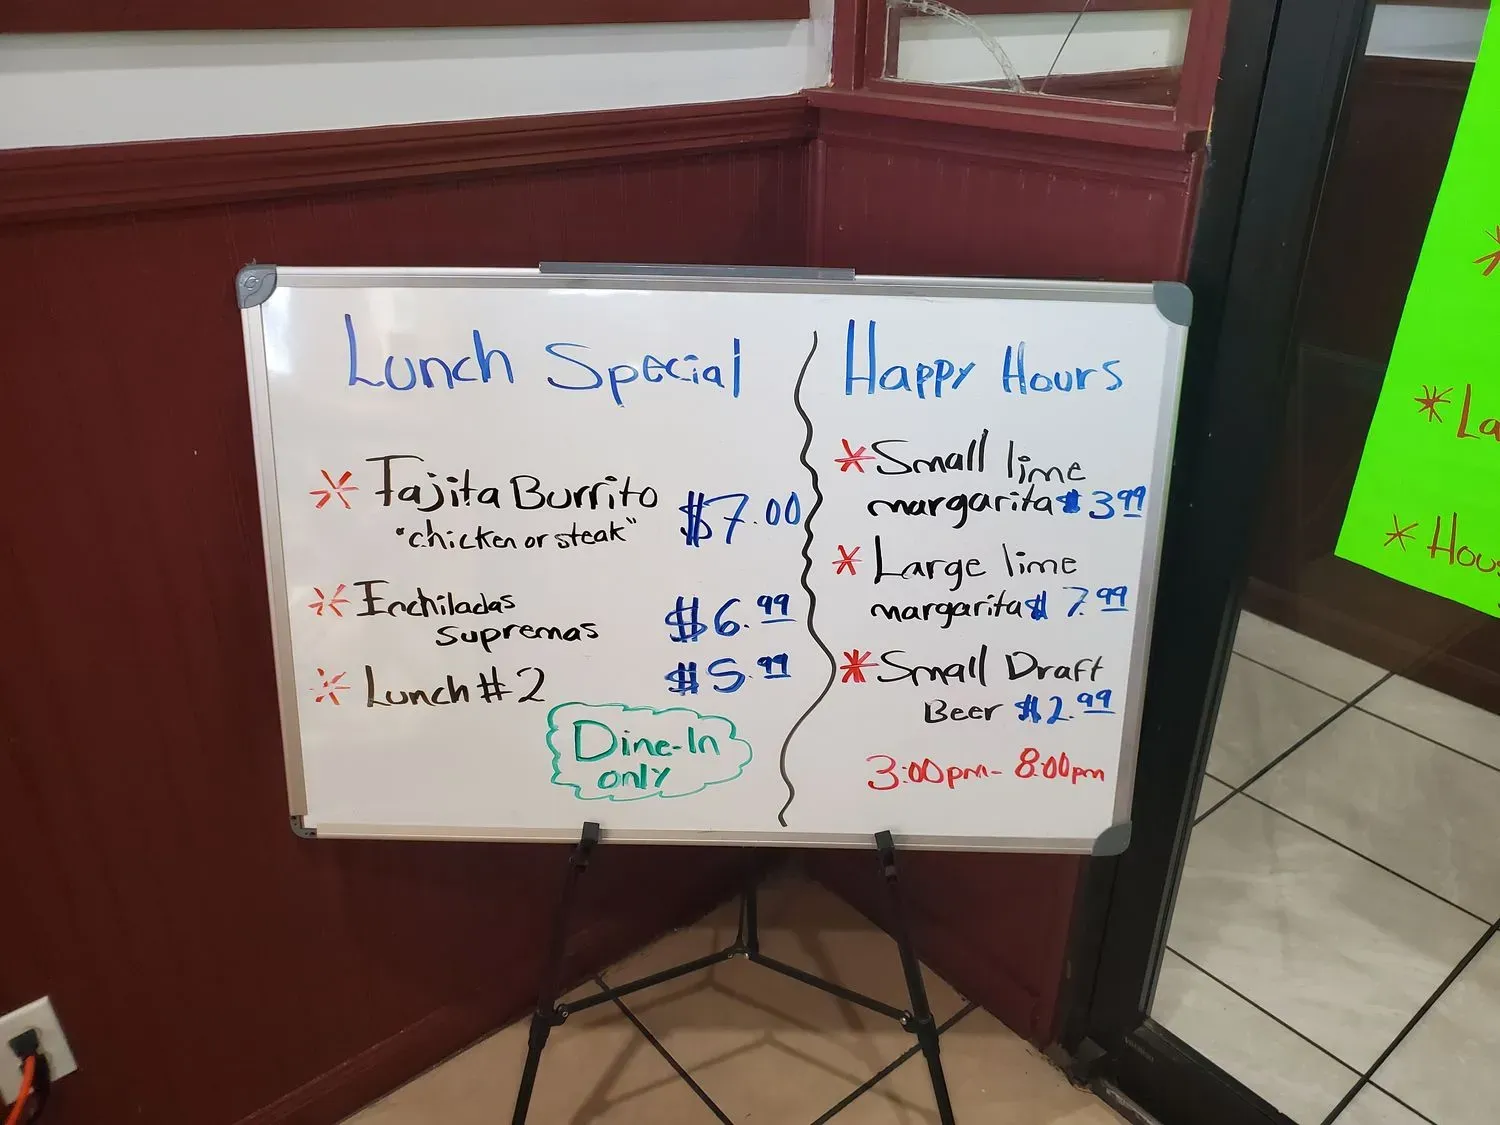 Lunch Special
* Fajita Burrito $7.00
"chicken or steak"
* Enchiladas $6.99
supremas
* Lunch #2 $5.99
Dine-In
only
Happy Hours
* Small lime
margarita $3.99
* Large lime
margarita $7.99
* Small Draft
Beer $2.99
3:00pm - 8:00pm
*
* La
* Hous